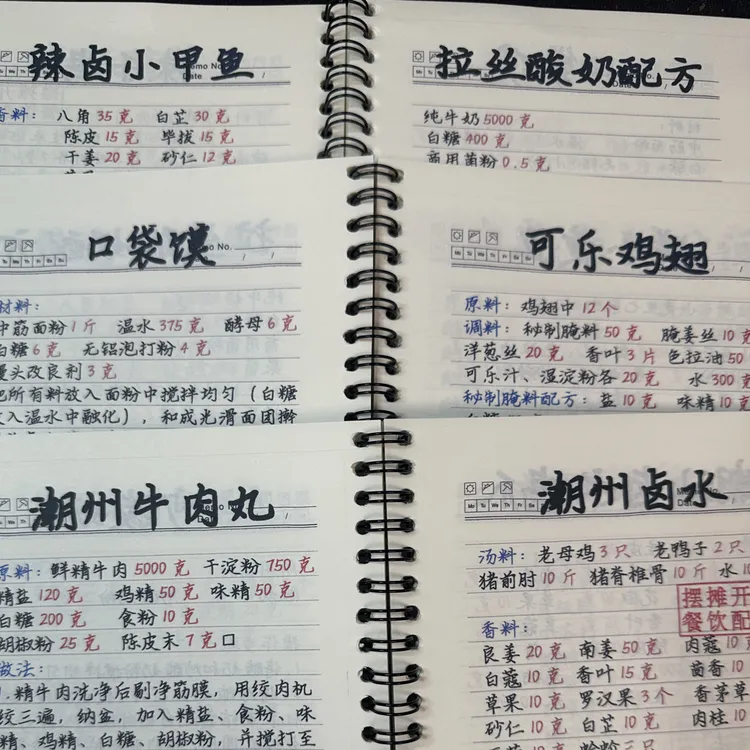 辣卤小甲鱼
香料：八角35克 白芷30克
陈皮15克 毕拔15克
干姜20克 砂仁12克
拉丝酸奶配方
纯牛奶5000克
白糖400克
商用菌粉0.5克
口袋馍
材料：
中筋面粉1斤 温水375克 酵母6克
白糖6克 无铝泡打粉4克
馒头改良剂3克
把所有料放入面粉中搅拌均匀（白糖
放入温水中融化），和成光滑面团擀
可乐鸡翅
原料：鸡翅中12个
调料：秘制腌料50克 腌姜丝10克
洋葱丝20克 香叶3片 色拉油50
可乐汁、湿淀粉各20克 水300克
秘制腌料配方：盐10克 味精10克
潮州牛肉丸
原料：鲜精牛肉5000克 干淀粉750克
精盐120克 鸡精50克 味精50克
白糖200克 食粉10克
胡椒粉25克 陈皮末7克口
做法：
1.精牛肉洗净后剔净筋膜，用绞肉机
绞三遍，纳盆，加入精盐、食粉、味
精、鸡精、白糖、胡椒粉，并搅打至
潮州卤水
汤料：老母鸡3只 老鸭子2只
猪前肘10斤 猪脊椎骨10斤 水10
摆摊开
餐饮配
香料：
良姜20克 南姜50克 肉蔻10克
白蔻10克 香叶15克 茴香10克
草果10克 罗汉果3个 香茅草
砂仁10克 白芷10克 肉桂10克